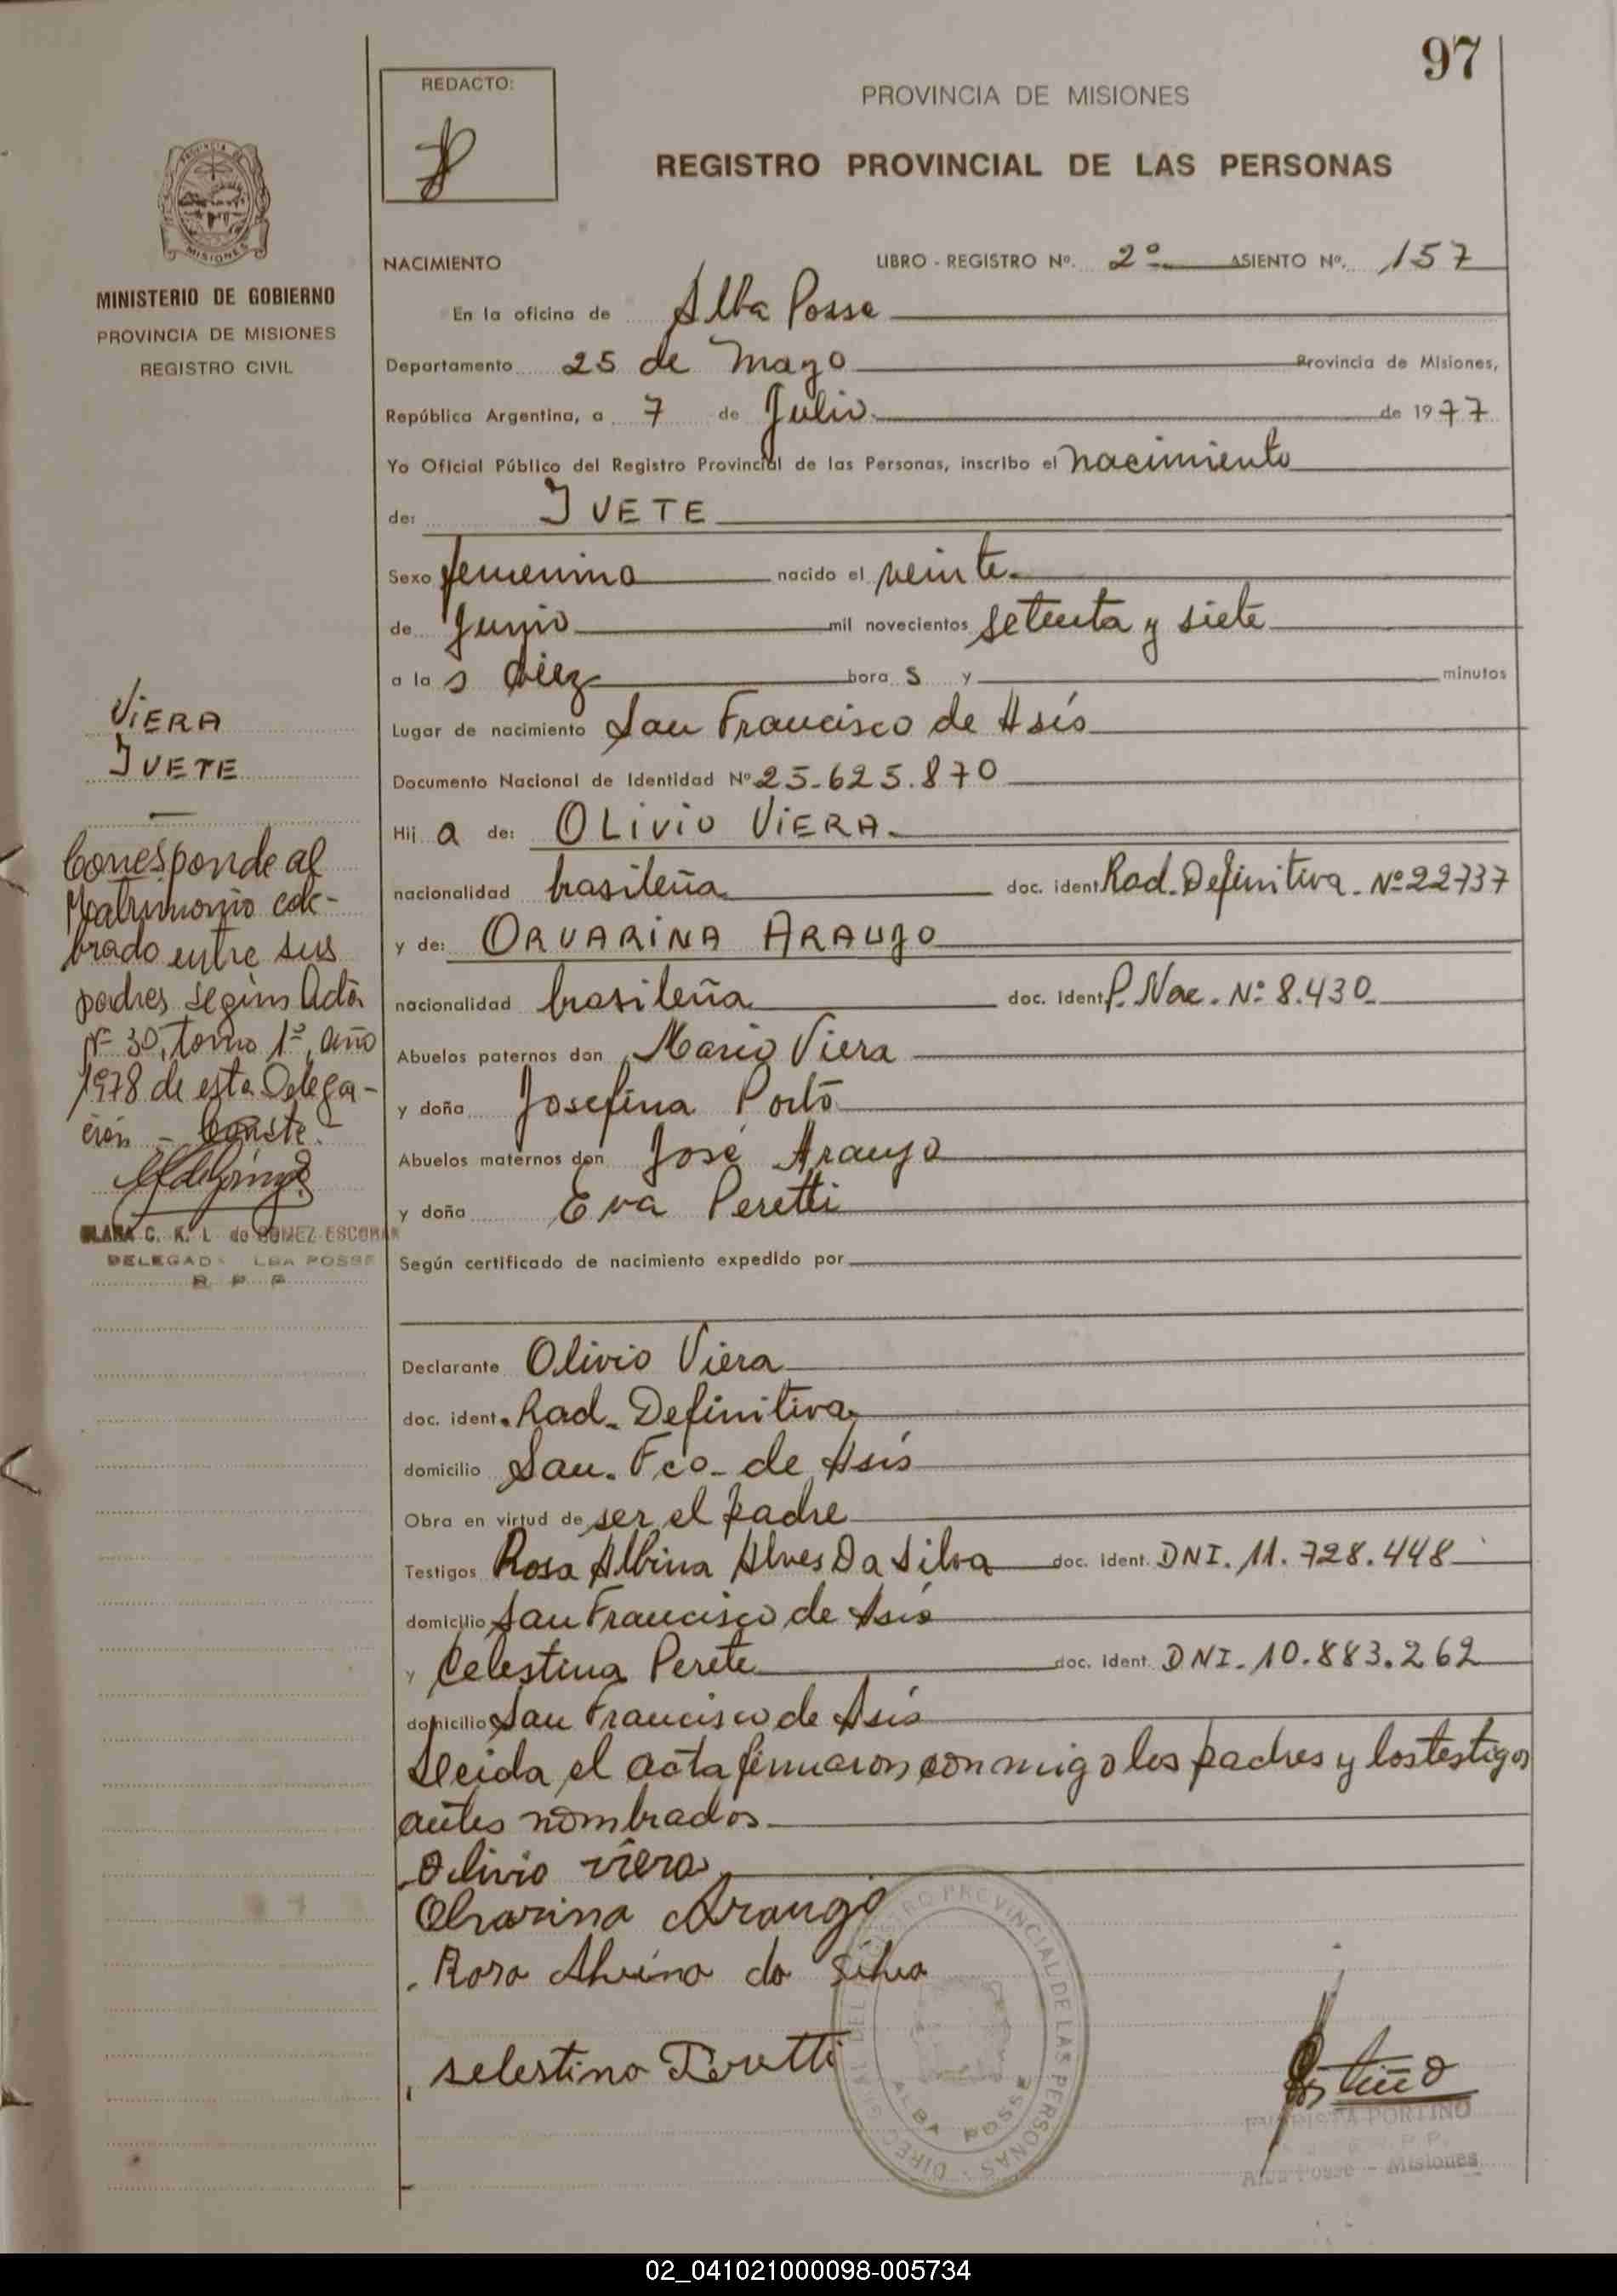 97
REDACTO:
PROVINCIA DE MISIONES
REGISTRO PROVINCIAL DE LAS PERSONAS
PROVINCIA DE
MISIONES
MINISTERIO DE GOBIERNO
PROVINCIA DE MISIONES
REGISTRO CIVIL
NACIMIENTO LIBRO - REGISTRO Nº. 2º ASIENTO Nº. 157
En la oficina de Alba Posse
Departamento 25 de Mayo Provincia de Misiones,
República Argentina, a 7 de Julio de 1977
Yo Oficial Público del Registro Provincial de las Personas, inscribo el nacimiento
de: IVETE
Sexo femenino nacido el veinte
de Junio mil novecientos setenta y siete
a las diez horas y minutos
Lugar de nacimiento San Francisco de Asís
Documento Nacional de Identidad Nº 25.625.870
Hija de: OLIVIO VIERA
nacionalidad brasileña doc. ident. Rad. Definitiva - Nº 22737
y de: ORVARINA ARAUJO
nacionalidad brasileña doc. ident. P. Nac. Nº 8.430
Abuelos paternos don Mario Viera
y doña Josefina Porto
Abuelos maternos don José Araujo
y doña Eva Peretti
Según certificado de nacimiento expedido por
Declarante Olivio Viera
doc. ident. Rad. Definitiva
domicilio San. Fco. de Asís
Obra en virtud de ser el padre
Testigos Rosa Albina Alves Da Silva doc. ident. DNI. 11.728.448
domicilio San Francisco de Asís
y Celestina Perete doc. ident. DNI. 10.883.262
domicilio San Francisco de Asís
Leida el acta firmaron conmigo los padres y los testigos
antes nombrados
Olivio viera
Olvarina Araujo
Rosa Alvina da Silva
selestino Perutti
VIERA
IVETE
Corresponde al
Matrimonio cele-
brado entre sus
padres según Acta
Nº 30, tomo 1º, año
1978 de esta Delega-
ción - Conste.
CLARA C. K. L. de GOMEZ ESCOBAR
DELEGAD ALBA POSSE
R P P
REGISTRO PROVINCIAL DE LAS PERSONAS
ALBA POSSE
PORTIÑO
Alba Posse - Misiones
02_041021000098-005734